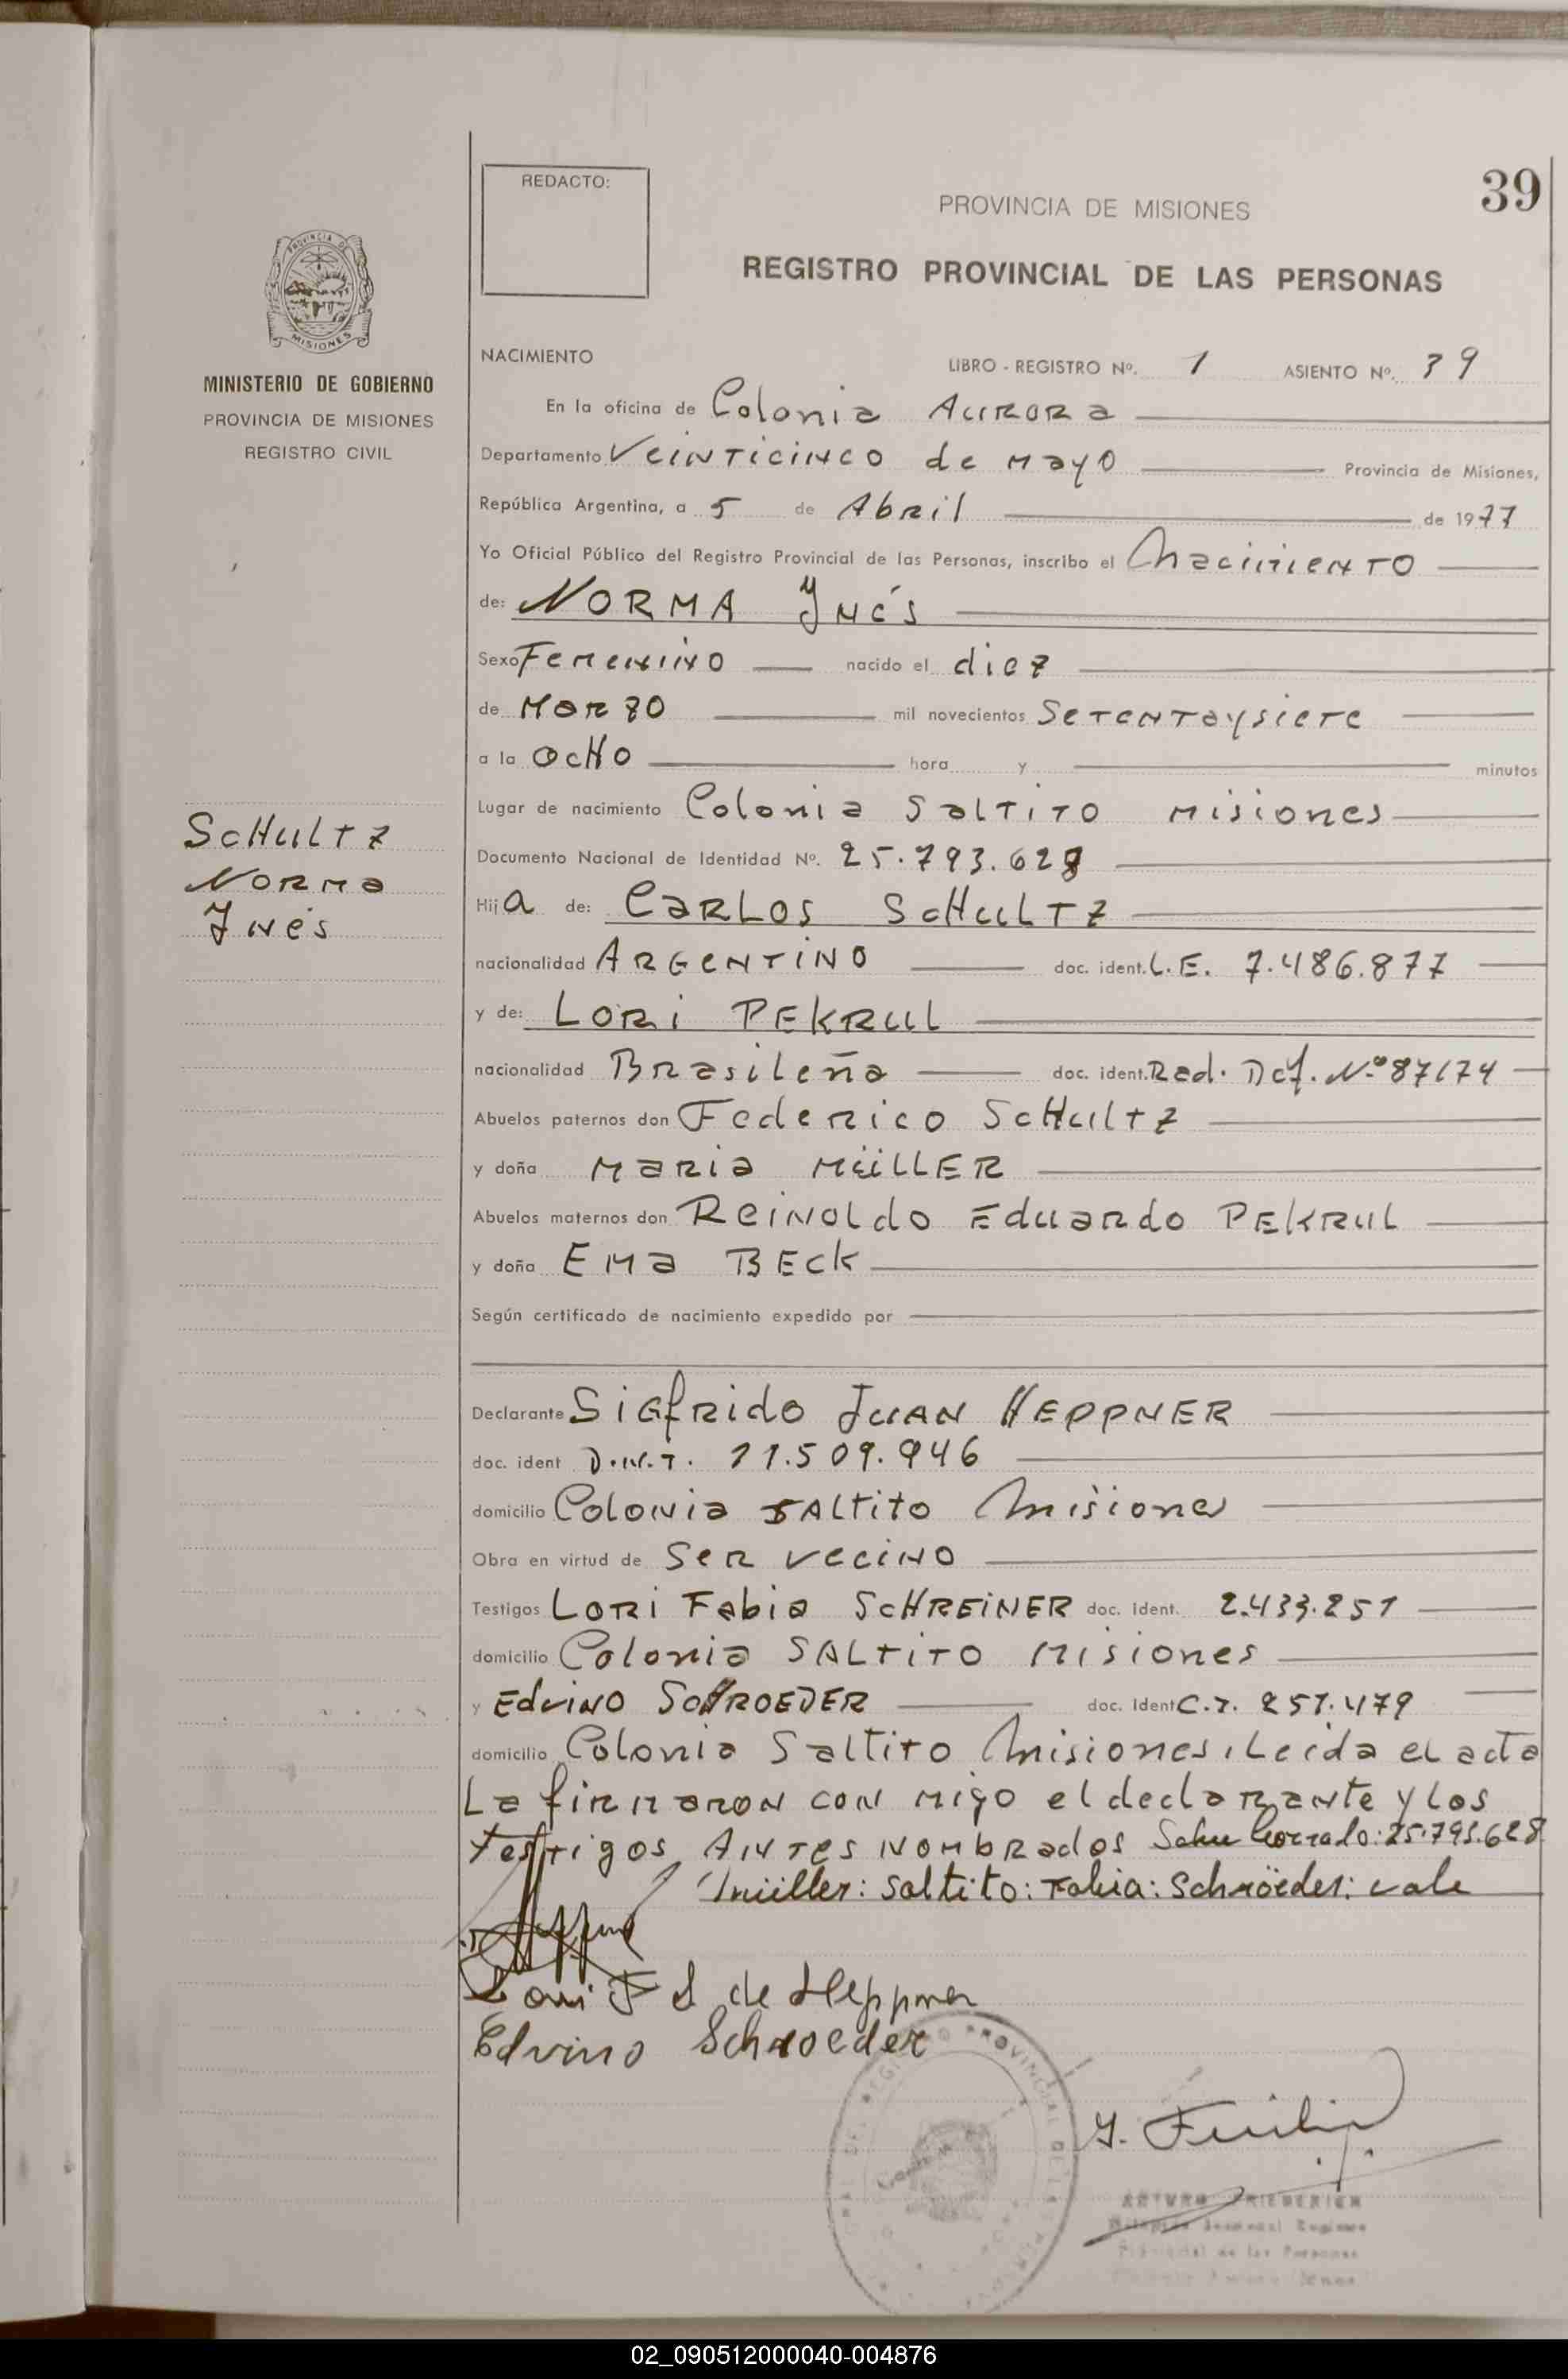 REDACTO:
39
PROVINCIA DE MISIONES
REGISTRO PROVINCIAL DE LAS PERSONAS
PROVINCIA DE
MISIONES
MINISTERIO DE GOBIERNO
PROVINCIA DE MISIONES
REGISTRO CIVIL
NACIMIENTO LIBRO - REGISTRO Nº. 1 ASIENTO Nº. 39
En la oficina de Colonia AURORa
Departamento VeiNTiciNco de Mayo Provincia de Misiones,
República Argentina, a 5 de Abril de 1977
Yo Oficial Público del Registro Provincial de las Personas, inscribo el NacimieNTO
de: NORMA INés
Sexo FemeniNO nacido el diez
de MaRzO mil novecientos SeTeNTaysieTe
a la OcHO hora y minutos
Lugar de nacimiento Colonia SalTiTO Misiones
Documento Nacional de Identidad Nº. 25.793.628
Hija de: CaRLOS ScHuLTZ
nacionalidad ARGeNTiNO doc. ident. L.E. 7.486.877
y de: LORi PEKRUL
nacionalidad BRasileña doc. ident. Rad. Def. Nº 87174
Abuelos paternos don FedeRico ScHultz
y doña MaRia MüLLER
Abuelos maternos don ReiNoldo Eduardo PEKRUL
y doña EMa BECK
Según certificado de nacimiento expedido por
Declarante SiGfRido JUAN HEPPNER
doc. ident D.N.I. 11.509.946
domicilio Colonia SALtito Misiones
Obra en virtud de SeR veciNO
Testigos LORi Fabia ScHREiNER doc. ident. 2.433.251
domicilio Colonia SALTiTO Misiones
y EdviNO ScHROEDER doc. Ident C.I. 251.479
domicilio Colonia SaltiTO Misiones, Leida el acta
La fiRmaRoN coN migo el declaRaNte y los
testigos ANTes NombRados Sobre borrado: 25.793.628
Müller: Saltito: Fabia: Schröeder: vale
ScHuLTZ
NORMa
INés
Lori F S de Heppner
Edvino Schroeder
ARTURO FRIEDERICH